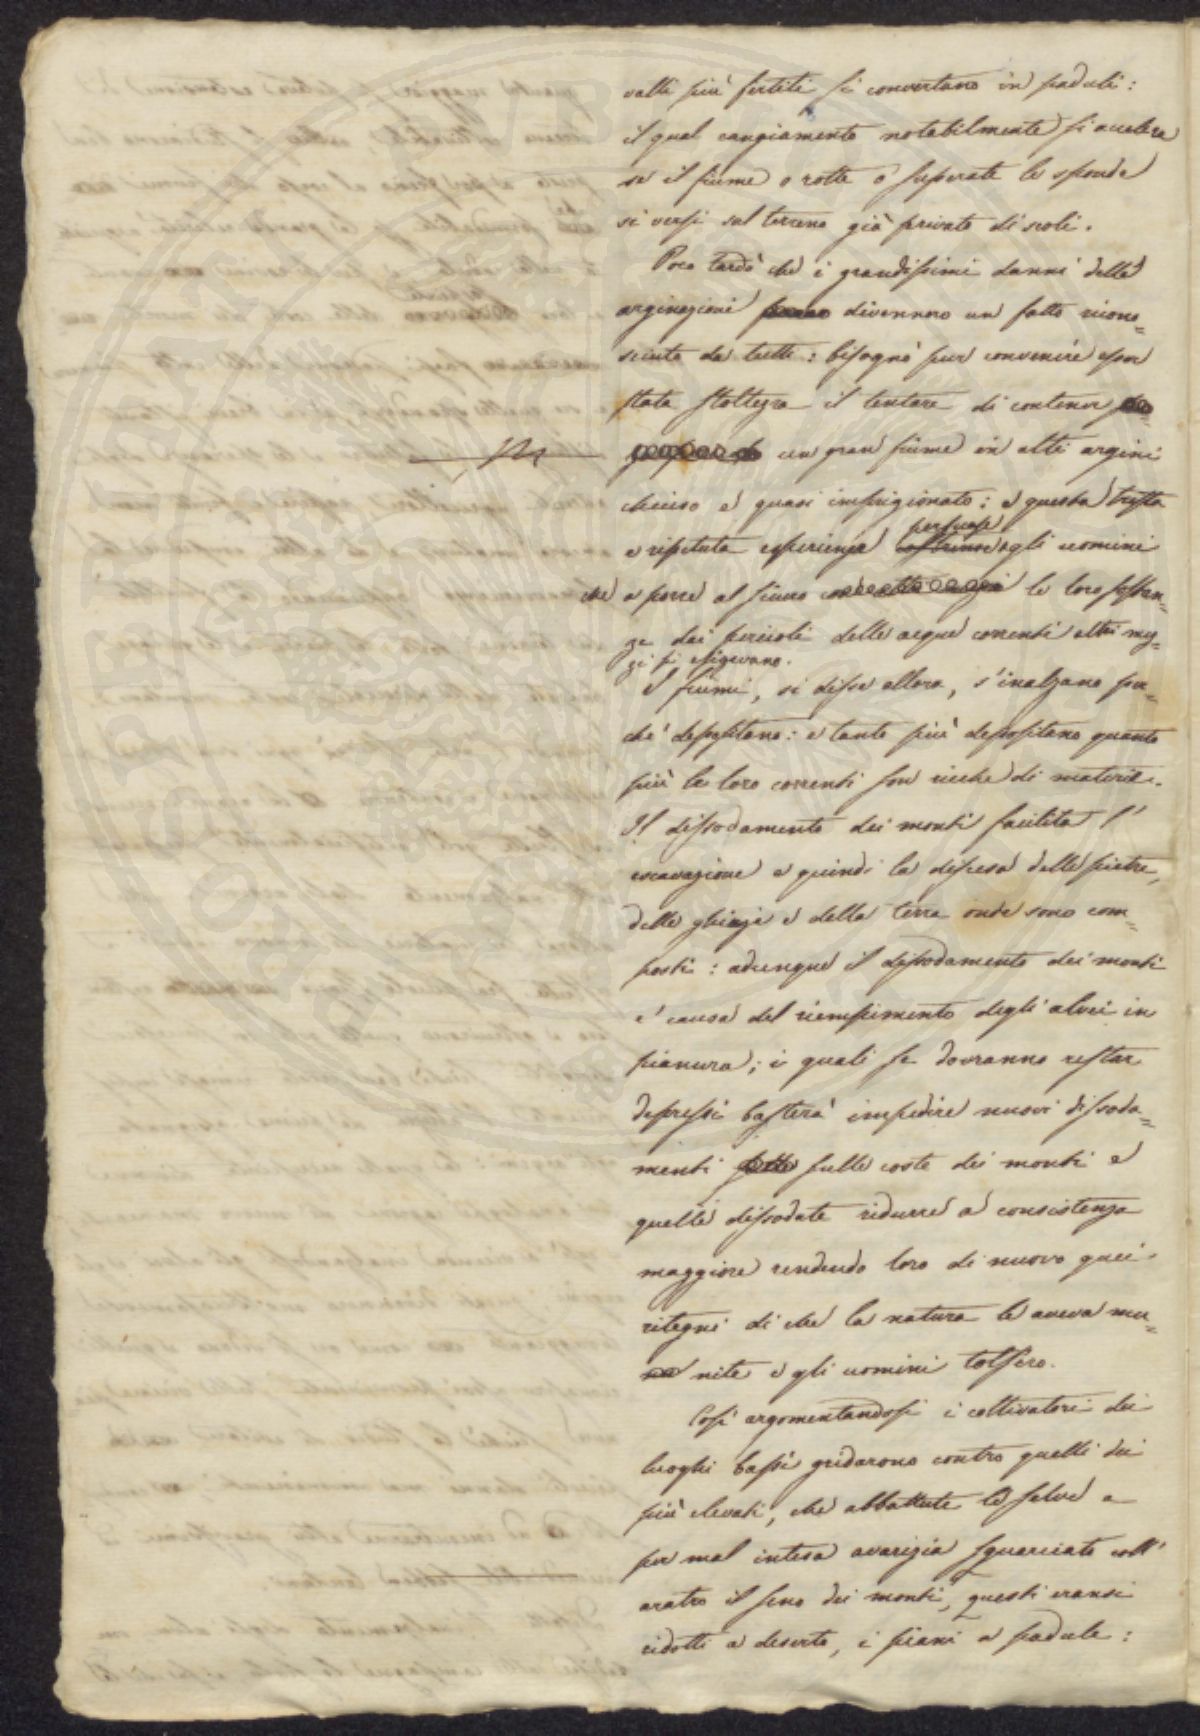 valli più fertili si convertano in paduli:
il qual cangiamento notabilmente si accelera
se il fiume o rotte o superate le sponde
si versi sul terreno già privato di scoli.
Poco tardò che i grandissimi danni delle
arginazioni divennero un fatto ricono=
sciuto da tutti: bisognò pur convenire esser
stata stoltezza il tentare di contener
un gran fiume in alti argini
chiuso e quasi imprigionato: e questa trista
e ripetuta esperienza persuase gli uomini
che a porre al sicuro le loro sostan=
ze dai pericoli delle acque correnti altri mez=
zi si esigevano.
I fiumi, si disse allora, s'inalzano per=
chè depositano: e tanto più depositano quanto
più le loro correnti son ricche di materie.
Il dissodamento dei monti facilita l'
escavazione e quindi la discesa delle pietre,
delle ghiaje e della terra onde sono com=
posti: adunque il dissodamento dei monti
e' causa del riempimento degli alvei in
pianura; i quali se dovranno restar
depressi basterà impedire nuovi dissoda=
menti sulle coste dei monti e
quelle dissodate ridurre a consistenza
maggiore rendendo loro di nuovo quei
ritegni di che la natura le aveva mu=
nite e gli uomini tolsero.
Così argomentandosi i coltivatori dei
luoghi bassi gridarono contro quelli dei
più elevati, che abbattute le selve e
per mal intesa avarizia squarciato coll'
aratro il seno dei monti, questi eransi
ridotti a deserto, i piani a padule: